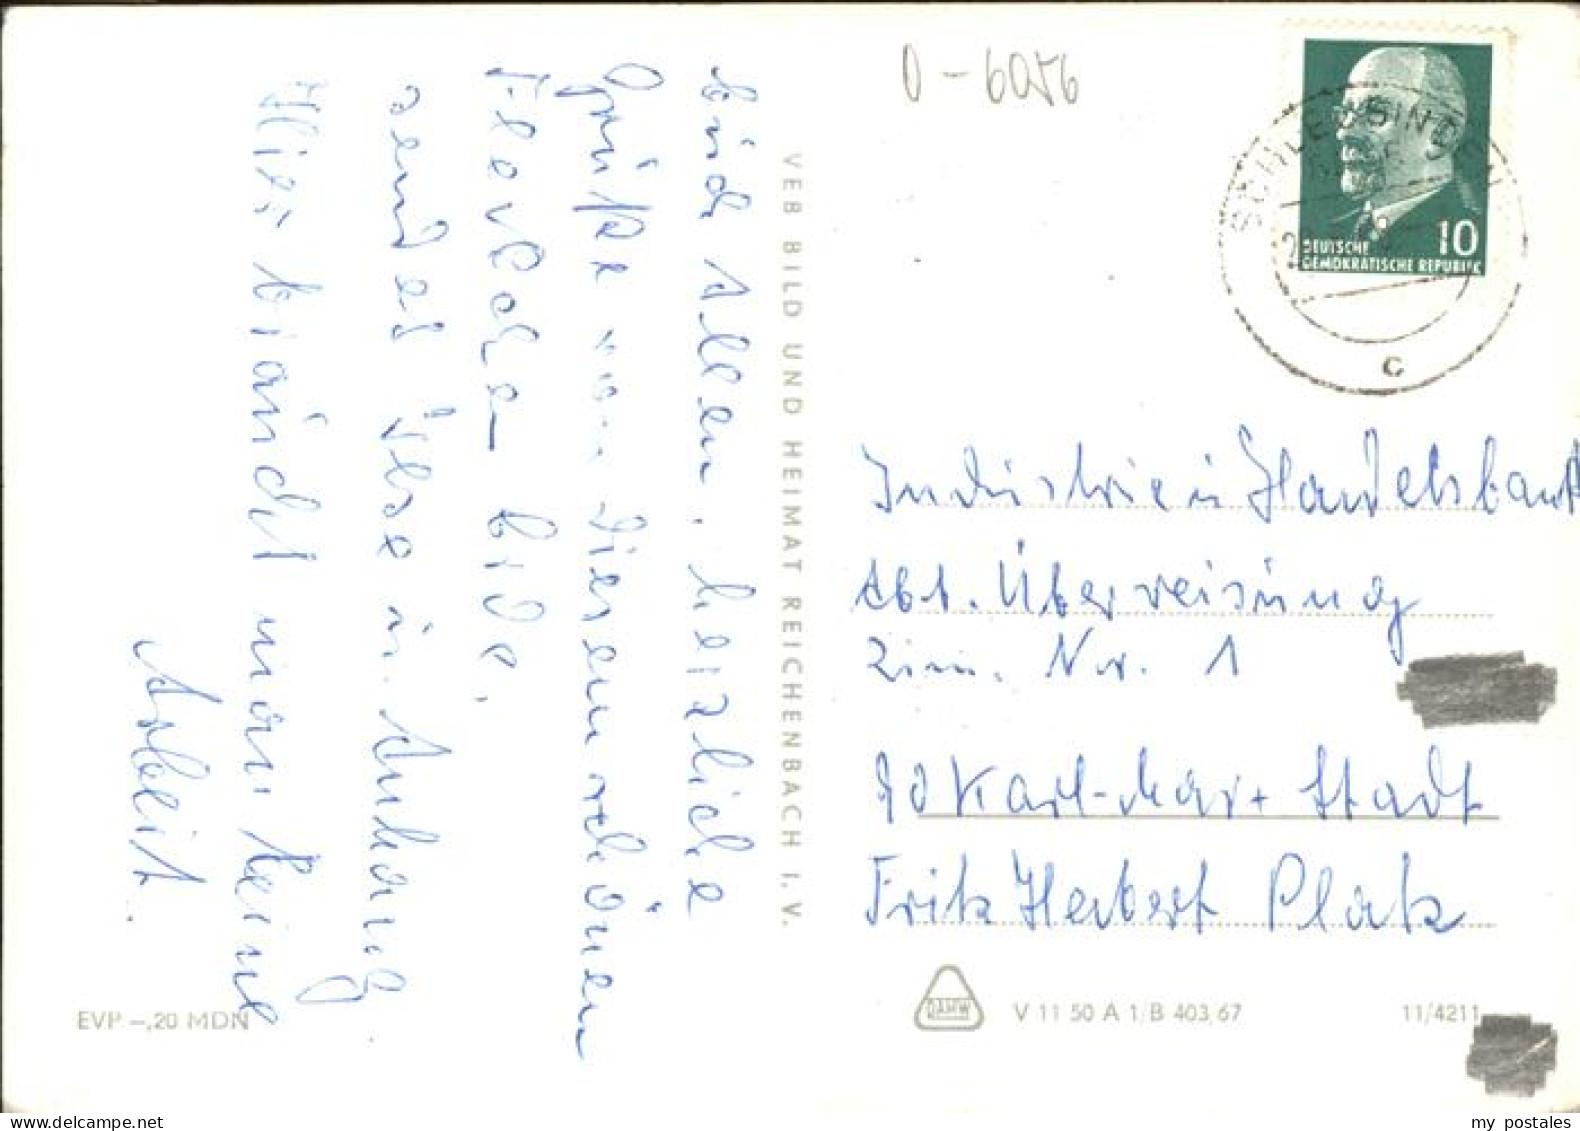 Euch allen, herzliche
Grüße von diesem schönen
Fleckchen Erde,
sendet Ilse m. Anhang
Hier braucht man keine
Arbeit.
VEB BILD UND HEIMAT REICHENBACH I. V.
EVP -,20 MDN
0-6056
SCHLEUSINGEN
c
10
DEUTSCHE
DEMOKRATISCHE REPUBLIK
Industrie u Handelsbank
Abt. Überweisung
Zim. Nr. 1
90 Karl-Marx Stadt
Fritz Herbert Platz
DAMW
V 11 50 A 1/B 403/67
11/4211
my postales